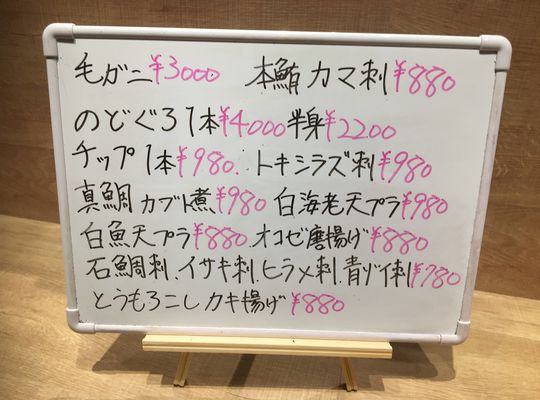 毛ガニ¥3000 本鮪カマ刺¥880
のどぐろ1本¥4000半身¥2200
チップ1本¥980. トキシラズ刺¥980
真鯛カブト煮¥980 白海老天プラ¥980
白魚天プラ¥880.オコゼ唐揚げ¥880
石鯛刺.イサキ刺.ヒラメ刺.青ゾイ刺¥780
とうもろこしカキ揚げ¥880